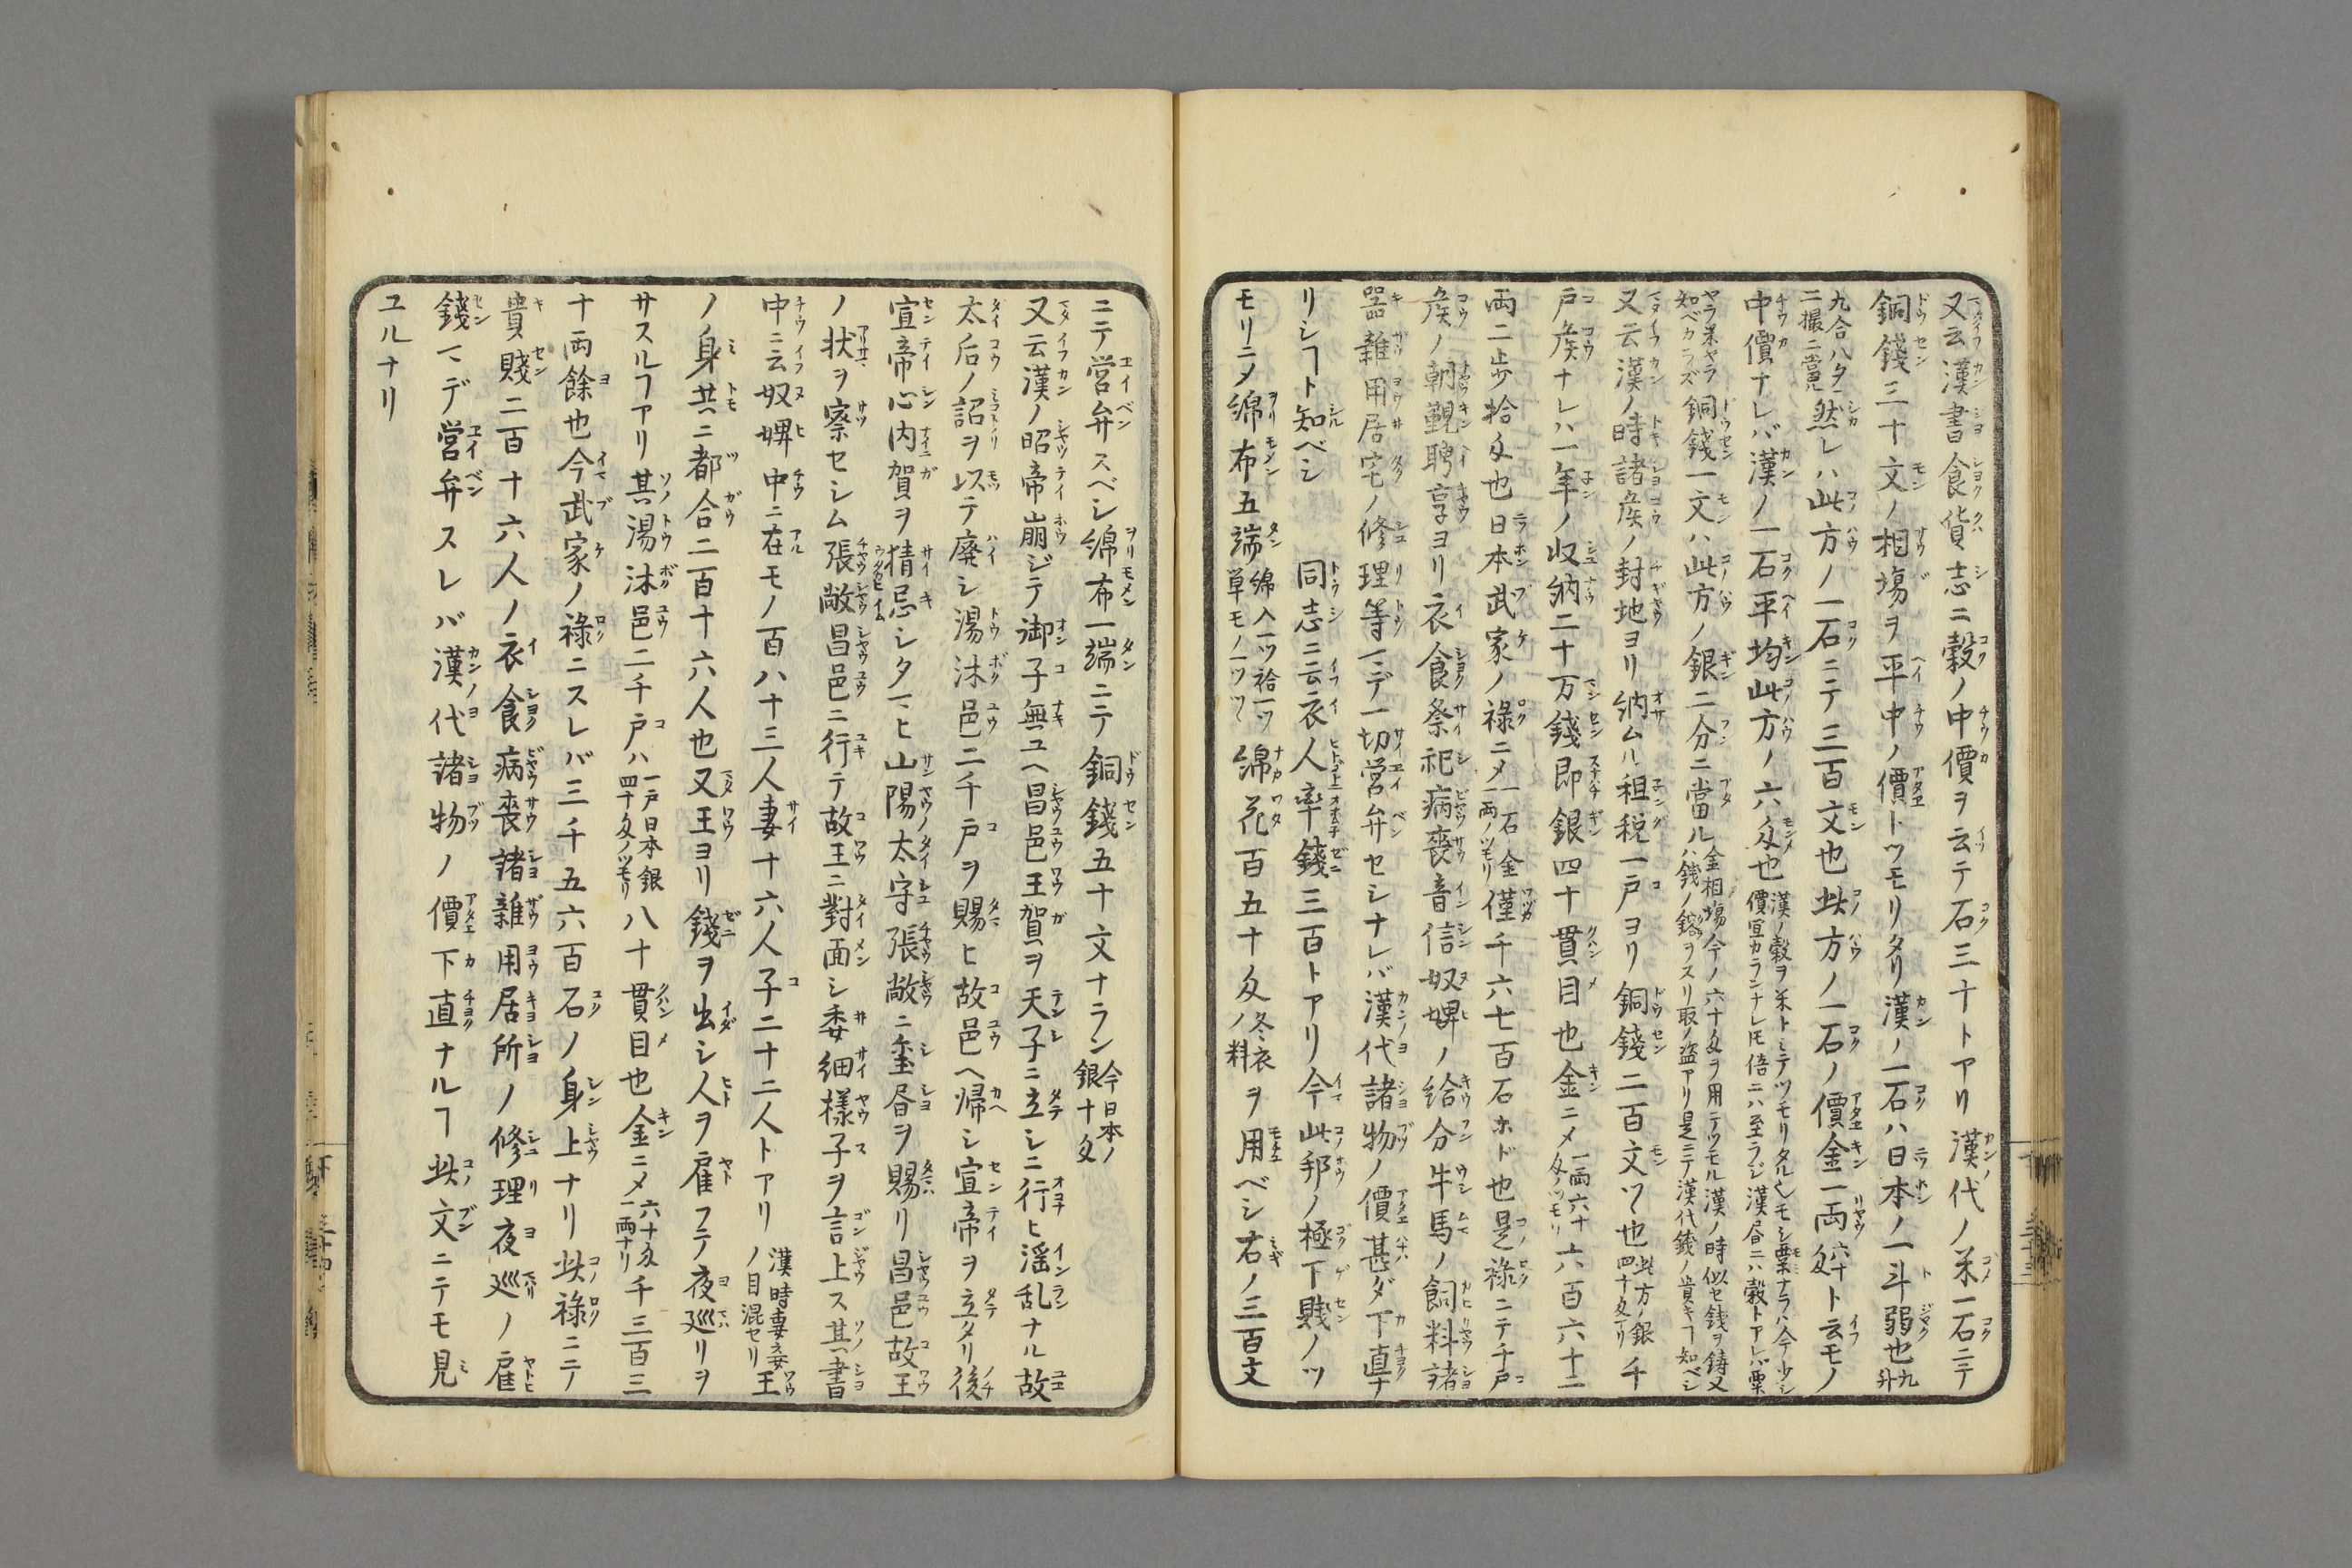 又云漢書食貨志ニ穀ノ中價ヲ云テ石三十トアリ漢代ノ米一石ニテ
銅錢三十文ノ相場ヲ平中ノ價トツモリタリ漢ノ一石ハ日本ノ一斗弱也九升
九合八夕二撮ニ當ル然レハ此方ノ一石ニテ三百文也此方ノ一石ノ價金一両六十匁ト云モノ
中價ナレバ漢ノ一石平均此方ノ六匁也漢ノ穀ヲ米トミテツモリタル也モシ粟ナラハ今少シ價宜カランナレ𪜈倍ニハ至ラジ漢書ニハ穀トアレバ粟
ヤラ米ヤラ知ベカラズ銅錢一文ハ此方ノ銀二分ニ當ル金相場今ノ六十匁ヲ用テツモル漢ノ時似セ錢ヲ鋳又ハ錢ノ鎔ヲスリ取ノ盗アリ是ニテ漢代錢ノ貴キヿ知ベシ
又云漢ノ時諸矦ノ封地ヨリ納ムル租税一戸ヨリ銅錢二百文ツヽ也此方ノ銀四十匁ナリ千
戸矦ナレハ一年ノ収納二十万錢即銀四十貫目也金ニメ一両六十匁ノツモリ六百六十六
両二歩拾匁也日本武家ノ禄ニメ一石金一両ノツモリ僅千六七百石ホド也是禄ニテ千戸
矦ノ朝覲聘享ヨリ衣食祭祀病喪音信奴婢ノ給分牛馬ノ飼料諸
器雜用居宅ノ修理等マデ一切営弁セシナレバ漢代諸物ノ價甚ダ下直ナ
リシヿト知ベシ　同志ニ云衣人率錢三百トアリ今此邦ノ極下賤ノツ
モリニメ綿布五端綿入一ツ袷一ツ単モノ一ツツヽ綿花百五十匁冬衣ノ料ヲ用ベシ右ノ三百文
ニテ営弁スベシ綿布一端ニテ銅錢五十文ナラン今日本ノ銀十匁
又云漢ノ昭帝崩ジテ御子無ユヘ昌邑王賀ヲ天子ニ立シニ行ヒ淫乱ナル故
太后ノ詔ヲ以テ廃シ湯沐邑二千戸ヲ賜ヒ故邑ヘ帰シ宣帝ヲ立タリ後
宣帝心内賀ヲ猜忌シタマヒ山陽太守張敞ニ璽書ヲ賜リ昌邑故王
ノ状ヲ察セシム張敞昌邑ニ行テ故王ニ對面シ委細樣子ヲ言上ス其書
中ニ云奴婢中ニ在モノ百八十三人妻十六人子二十二人トアリ漢時妻妾ノ目混セリ王
ノ身共ニ都合二百十六人也又王ヨリ錢ヲ出シ人ヲ雇フテ夜廵リヲ
サスルヿアリ其湯沐邑二千戸ハ一戸日本銀四十匁ノツモリ八十貫目也金ニメ六十匁一両ナリ千三百三
十両餘也今武家ノ禄ニスレバ三千五六百石ノ身上ナリ此禄ニテ
貴賤二百十六人ノ衣食病喪諸雜用居所ノ修理夜廵ノ雇
錢マデ営弁スレバ漢代諸物ノ價下直ナルヿ此文ニテモ見
ユルナリ